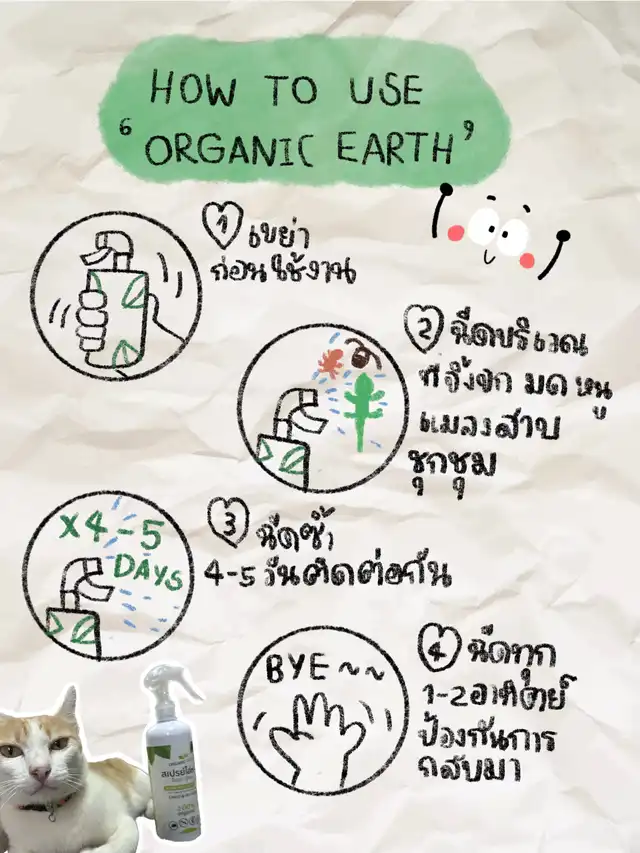 HOW TO USE
'ORGANIC EARTH'
1 เขย่า
ก่อนใช้งาน
2 ฉีดบริเวณ
ที่จิ้งจก มด หนู
แมลงสาบ
ชุกชุม
X4-5
DAYS
3 ฉีดซ้ำ
4-5 วันติดต่อกัน
BYE~~
4 ฉีดทุก
1-2 อาทิตย์
ป้องกันการ
กลับมา